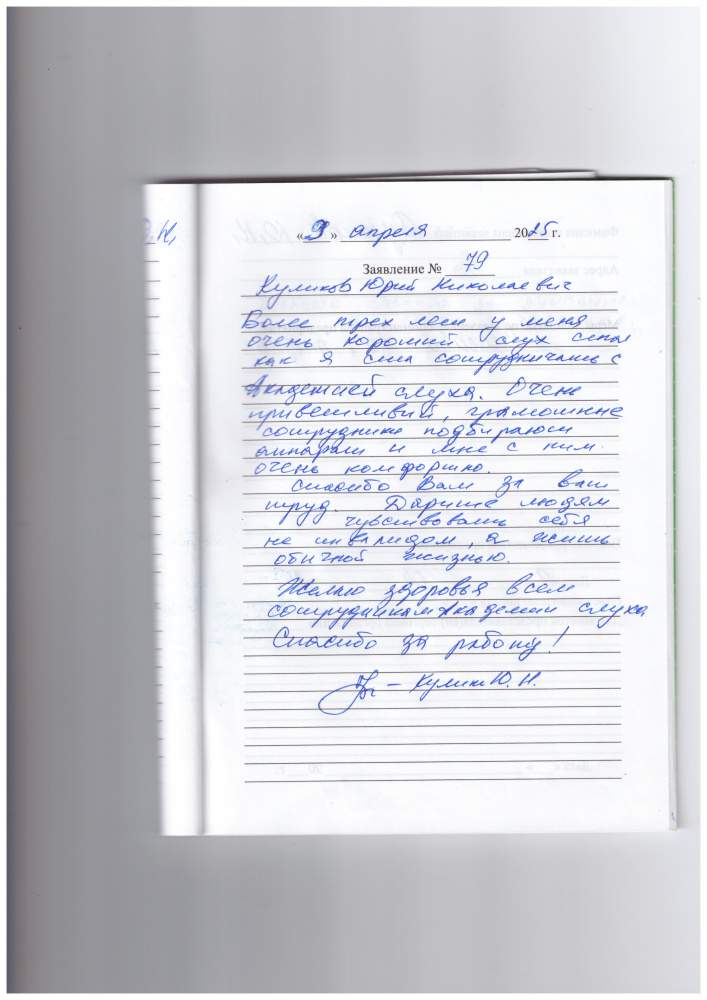 .Н,
«3» апреля 2025 г.
Заявление № 79
Куликов Юрий Николаевич
Более трех лет у меня
очень хороший слух стал
как я стал сотрудничать с
Академией слуха. Очень
приветливий, грамотные
сотрудники подбирают
аппараты и мне с ним
очень комфортно.
Спасибо Вам за ваш
труд. Дарите людям
чувствовать себя
не инвалидом, а жить
обычной жизнью.
Желаю здоровья всем
сотрудникам Академии слуха
Спасибо за работу!
– Кулик Ю. Н.